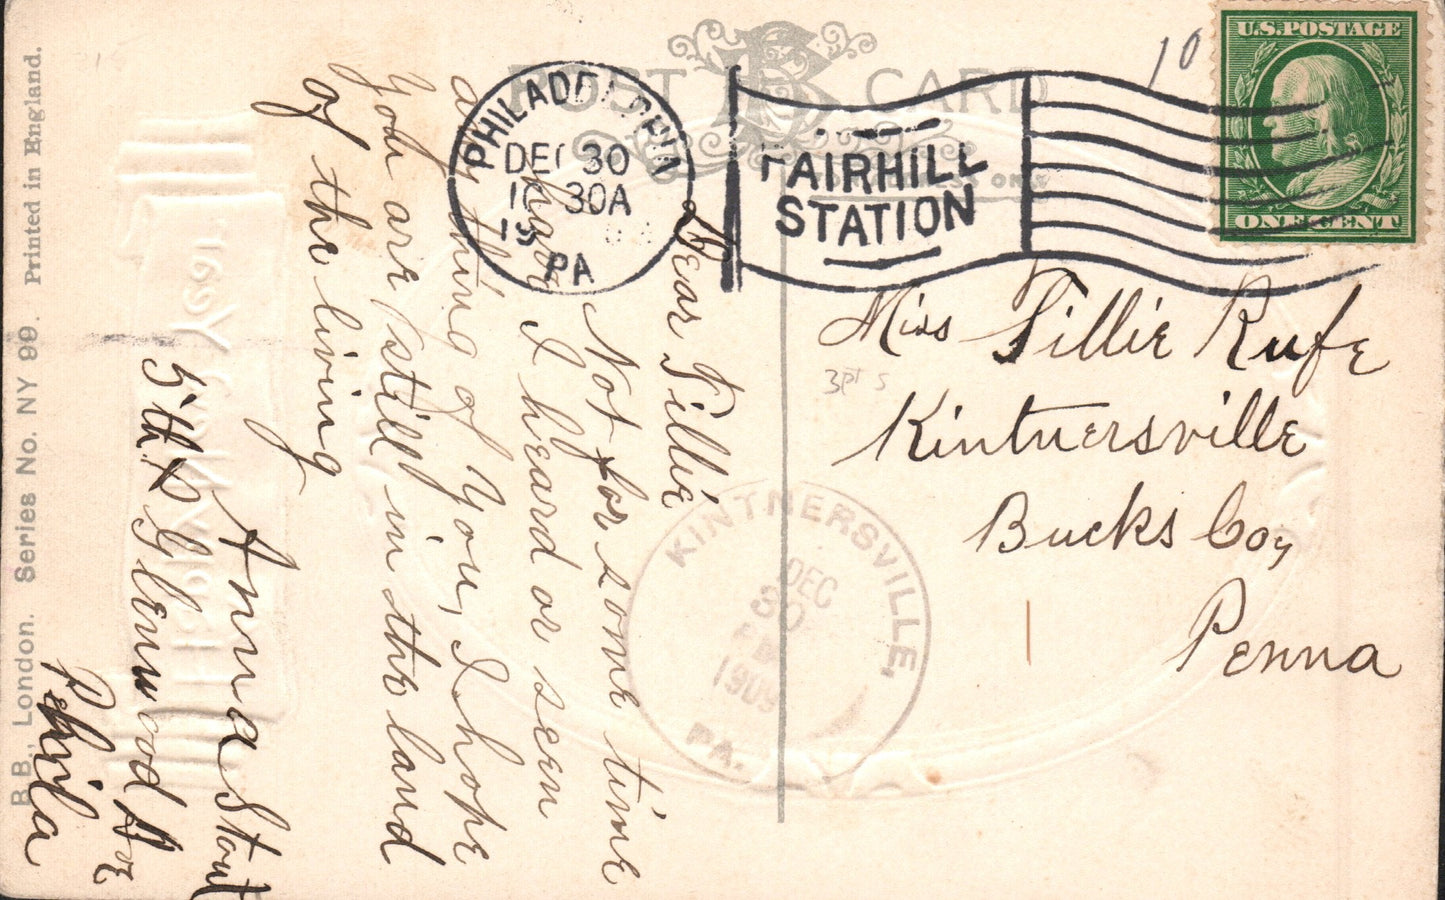 B.B., London. Series No. NY 99. Printed in England.
POST CARD
PHILADELPHIA
DEC 30
10 30A
19
PA
FAIRHILL
STATION
10
U.S. POSTAGE
ONE CENT
Miss Tillie Rufe
3pt s
Kintnersville
Bucks Coy
Penna
KINTNERSVILLE,
DEC
30
1909
PA.
Dear Tillie
Not for some time
have I heard or seen
anything of You, I hope
You are still in the land
of the living
Anna Stout
5th & Glenwood Ave
Phila